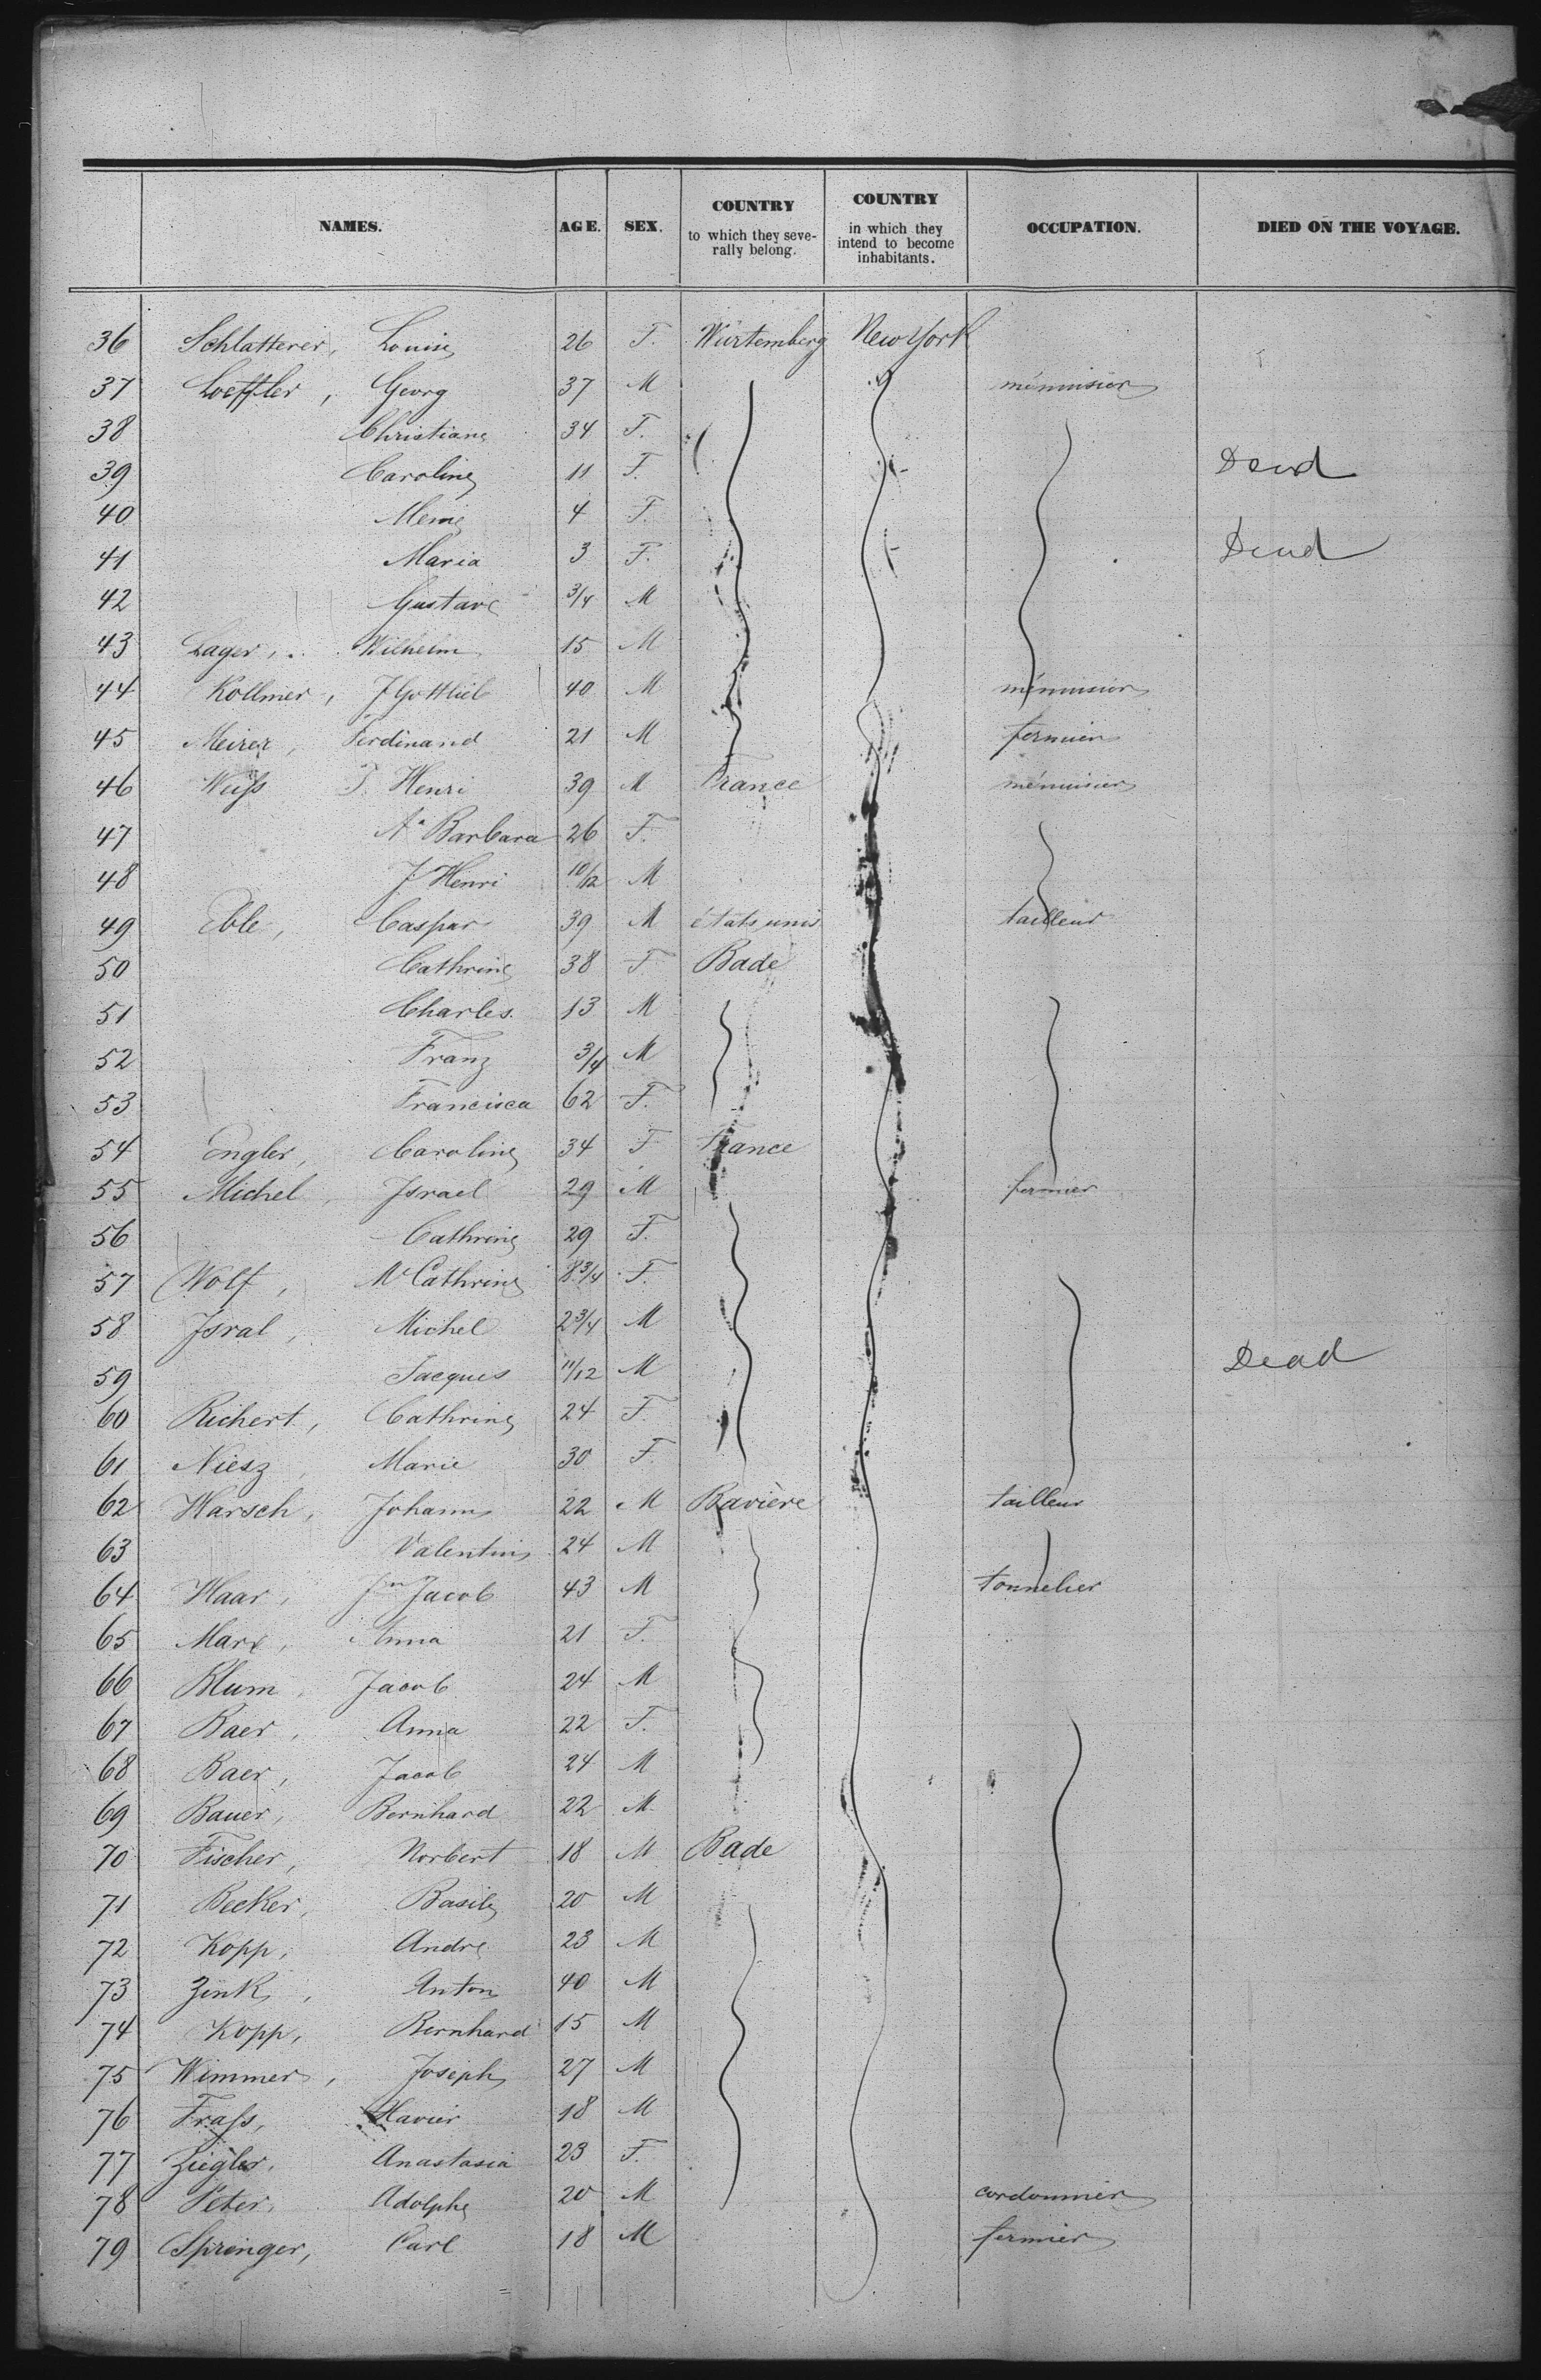 NAMES. AGE. SEX. COUNTRY to which they severally belong. COUNTRY in which they intend to become inhabitants. OCCUPATION. DIED ON THE VOYAGE.
36 Schlatterer, Louise 26 F. Würtemberg New York
37 Loeffler, Georg 37 M ménuisier
38 Christiane 34 F.
39 Caroline 11 F. Dead
40 4 F.
41 Maria 3 F. Dead
42 Gustave 3/4 M
43 Lager, Wilhelm 15 M
44 Kollmer, J Gottlieb 40 M ménuisier
45 Ferdinand 21 M fermier
46 Weiss Henri 39 M France ménuisier
47 Aa Barbara 26 F.
48 J Henri 10/12 M
49 Eble, Caspar 39 M états unis tailleur
50 Cathrine 38 F Bade
51 Charles. 13 M
52 Franz 3/4 M
53 Francisca 62 F.
54 Engler, Caroline 34 F France
55 Michel, Israel 29 M fermier
56 Cathrine 29 F.
57 Wolf, M Cathrine 8 3/4 F.
58 Isral, Michel 2 3/4 M
59 Jacques 11/12 M Dead
60 Richert, Cathrine 24 F.
61 Niesz, Marie 30 F.
62 Harsch, Johann 22 M Bavière tailleur
63 Valentin 24 M
64 Haar, Jn Jacob 43 M tonnelier
65 Marx, Anna 21 F.
66 Blum, Jacob 24 M
67 Baer, Anna 22 F.
68 Baer, Jacob 24 M
69 Bauer, Bernhard 22 M
70 Fischer, Norbert 18 M Bade
71 Becker, Basile 20 M
72 Kopp, Andre 23 M
73 Zink, Anton 40 M
74 Kopp, Bernhard 15 M
75 Wimmer, Joseph 27 M
76 Frass, Xavier 18 M
77 Ziegler, Anastasia 23 F.
78 Peter, Adolphe 20 M cordonnier
79 Springer, Carl 18 M fermier